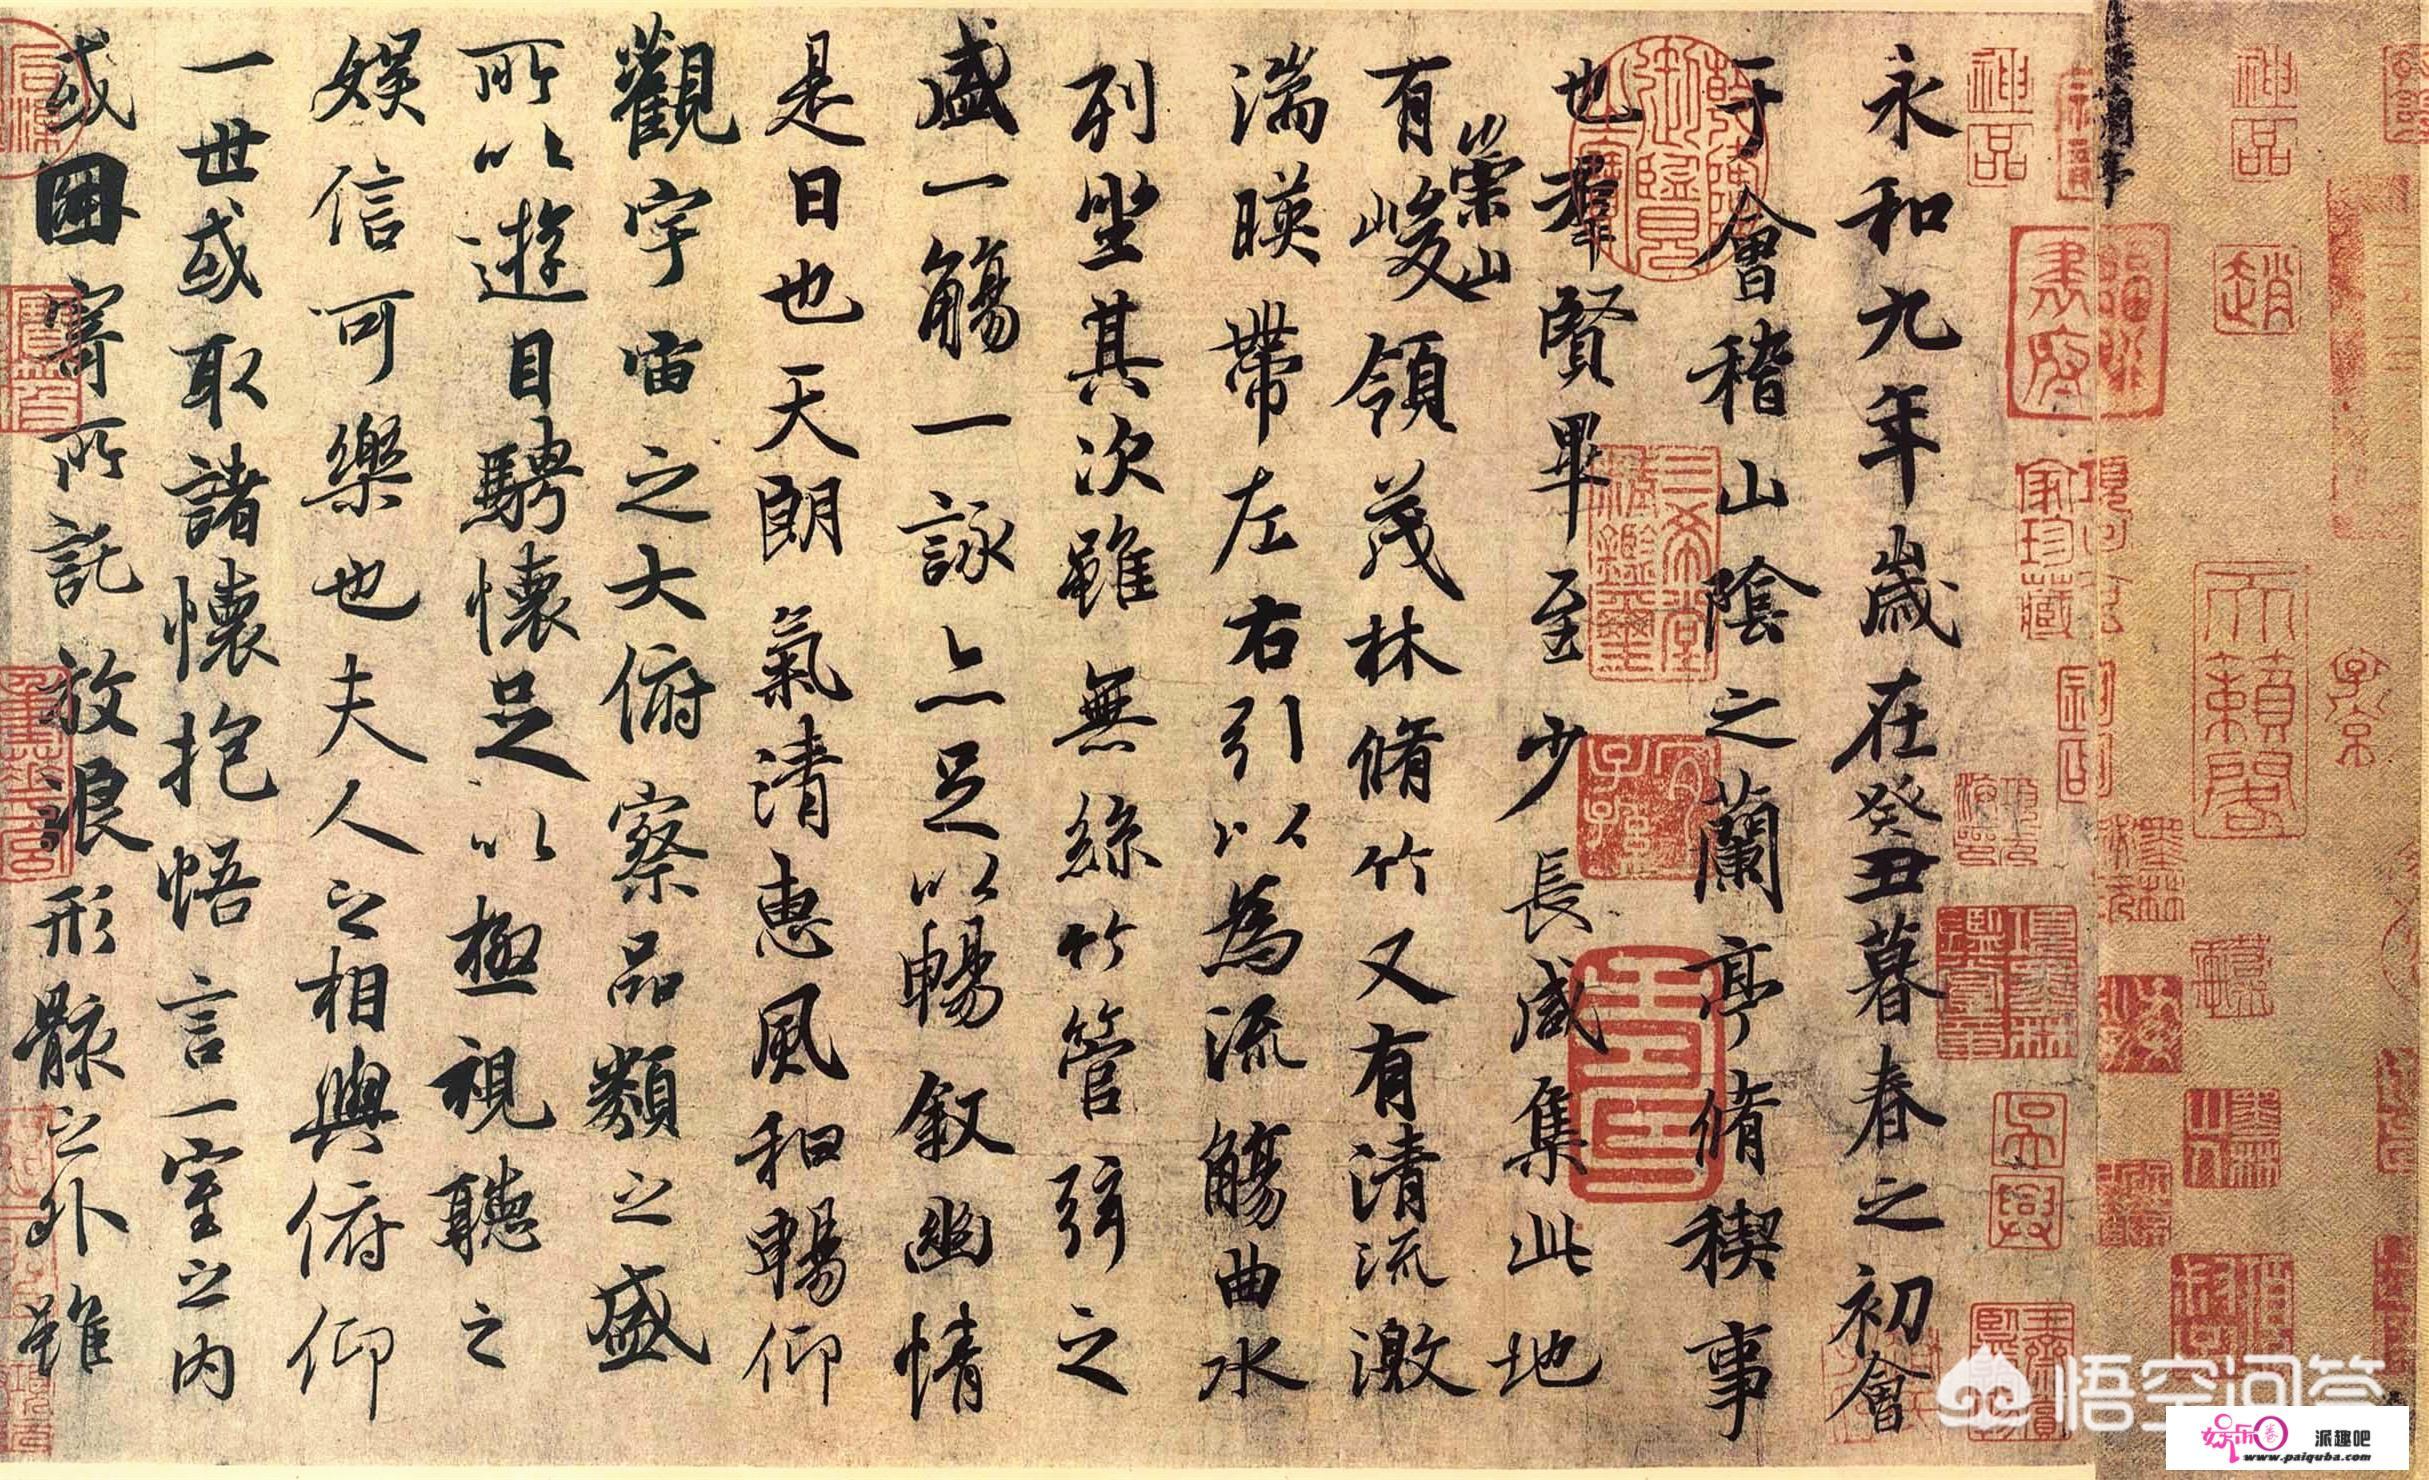 神品
趙
天籟閣
子京
神品
永和九年歲在癸丑暮春之初會
于會稽山陰之蘭亭脩稧事
也羣賢畢至少長咸集此地
崇山
有峻領茂林脩竹又有清流激
湍暎帶左右引以為流觴曲水
列坐其次雖無絲竹管弦之
盛一觴一詠亦足以暢敘幽情
是日也天朗氣清惠風和暢仰
觀宇宙之大俯察品類之盛
所以遊目騁懷足以極視聽之
娛信可樂也夫人之相與俯仰
一世或取諸懷抱悟言一室之內
或因寄所託放浪形骸之外雖
三希堂精鑑璽
悟空问答
派趣吧
www.paiquba.com